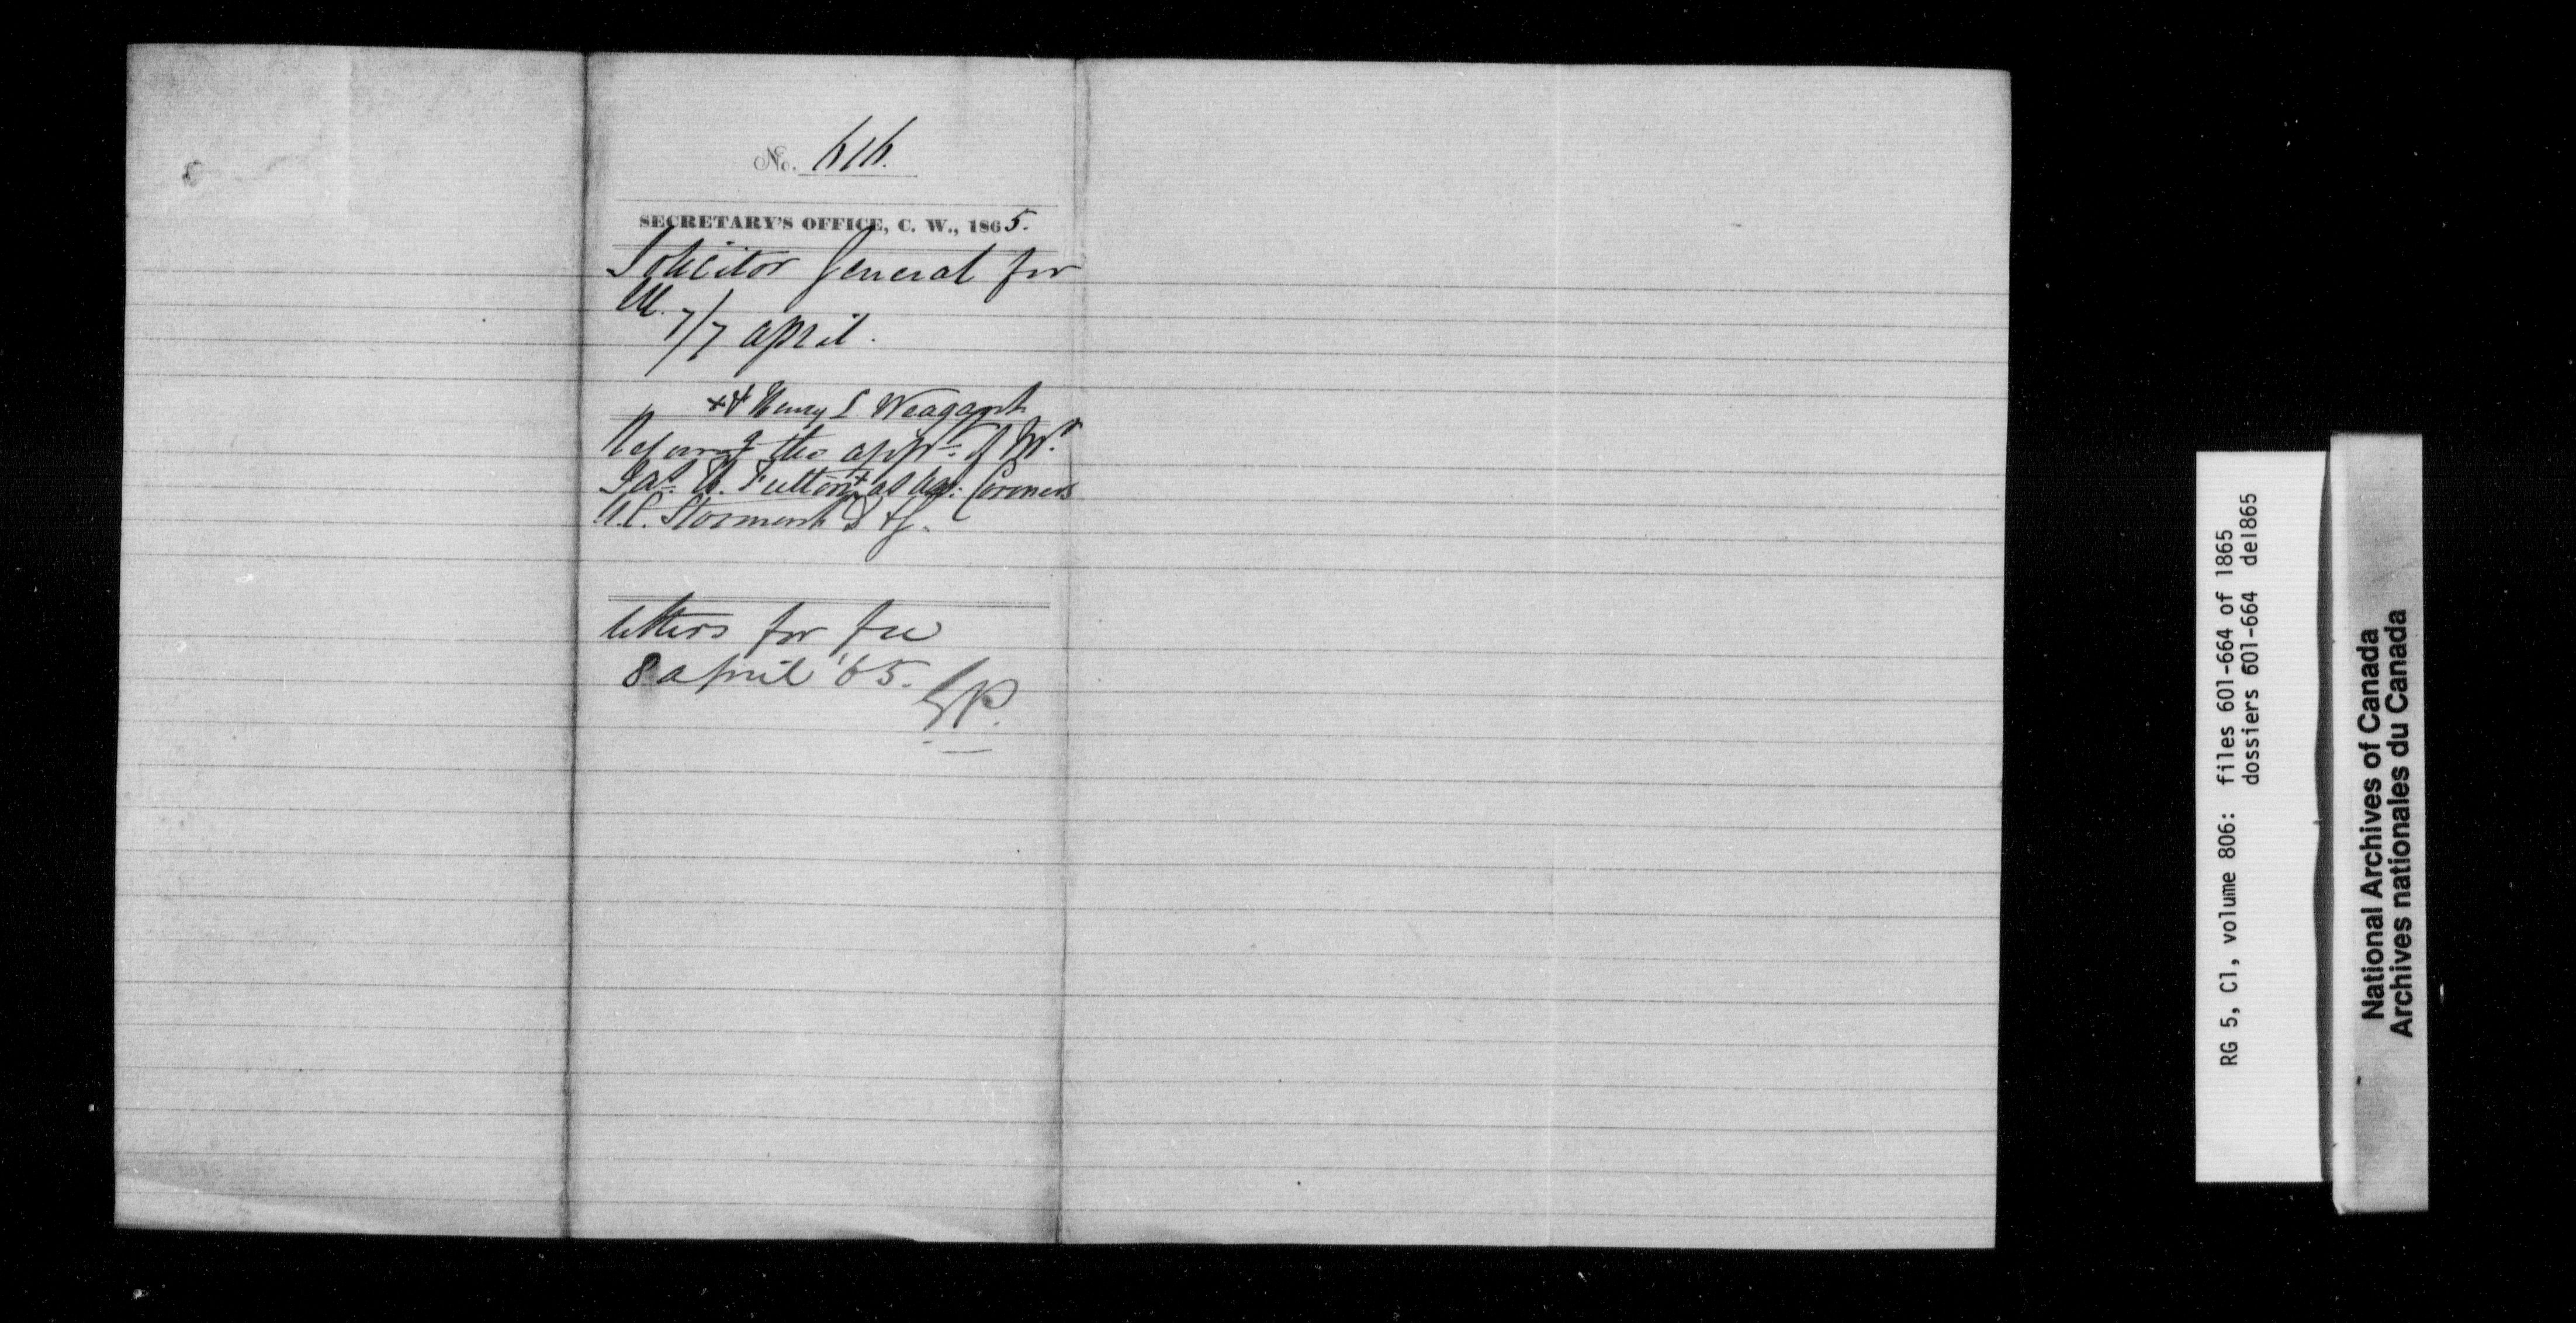 No. 616.
SECRETARY'S OFFICE, C. W., 1865.
Solicitor General for
W. 7/7 april.
+ Henry S Weagant
the appt. of Mr.
Jas. A. Fulton + as as: Coroners
U.C. Stormont D & G.
letters for fee
8 april '65.
GP.
RG 5, C1, volume 806: files 601-664 of 1865
dossiers 601-664 de1865
National Archives of Canada
Archives nationales du Canada